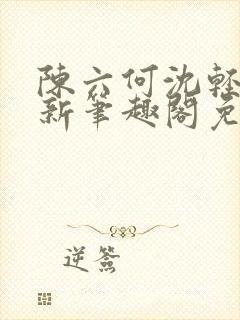 陳六何沈輕
新筆趣閣免
逆簽